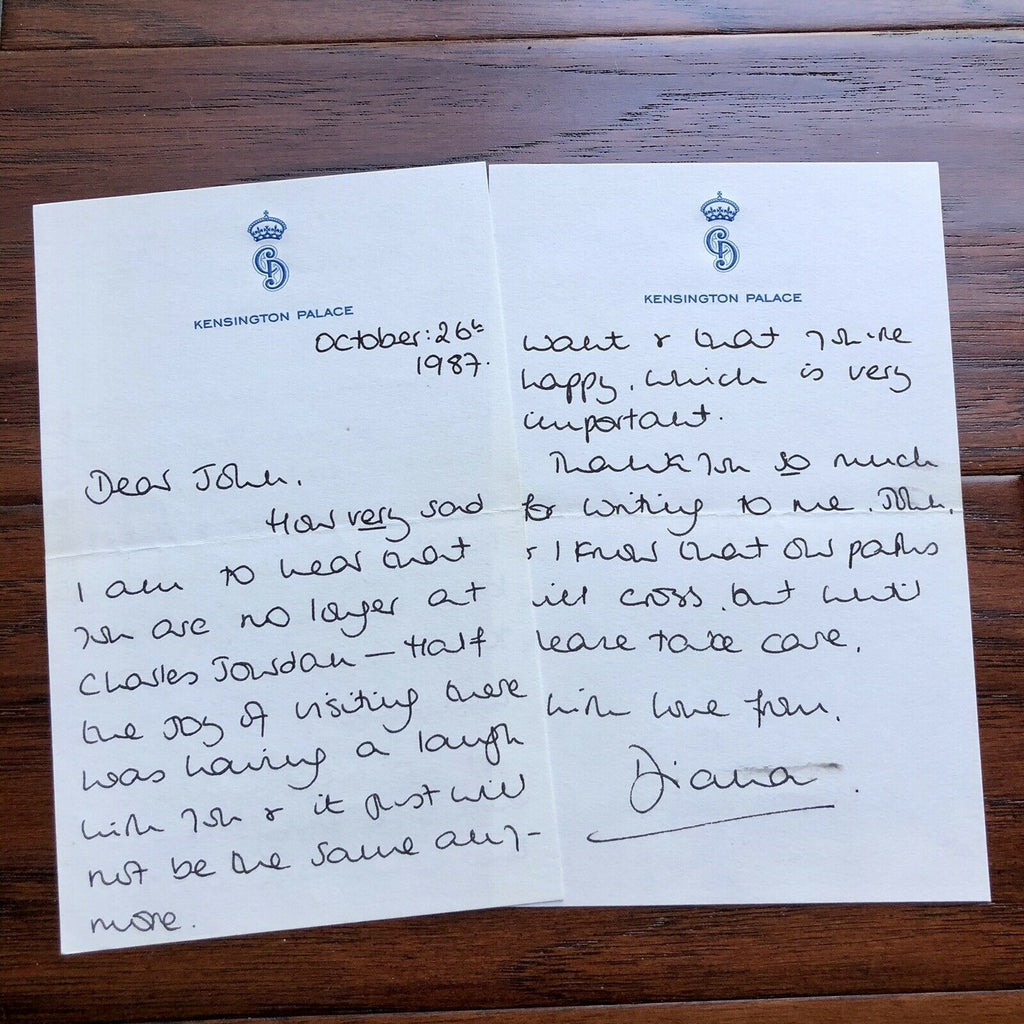 KENSINGTON PALACE
October: 26th
1987.
Dear John,
How very sad
I am to hear that
you are no longer at
Charles Jourdan – Half
the joy of visiting there
was having a laugh
with you & it just will
not be the same any-
more.
KENSINGTON PALACE
want & that you're
happy, which is very
important.
Thank you so much
for writing to me, John,
I know that our paths
will cross, but until
take care.
with love from,
Diana.